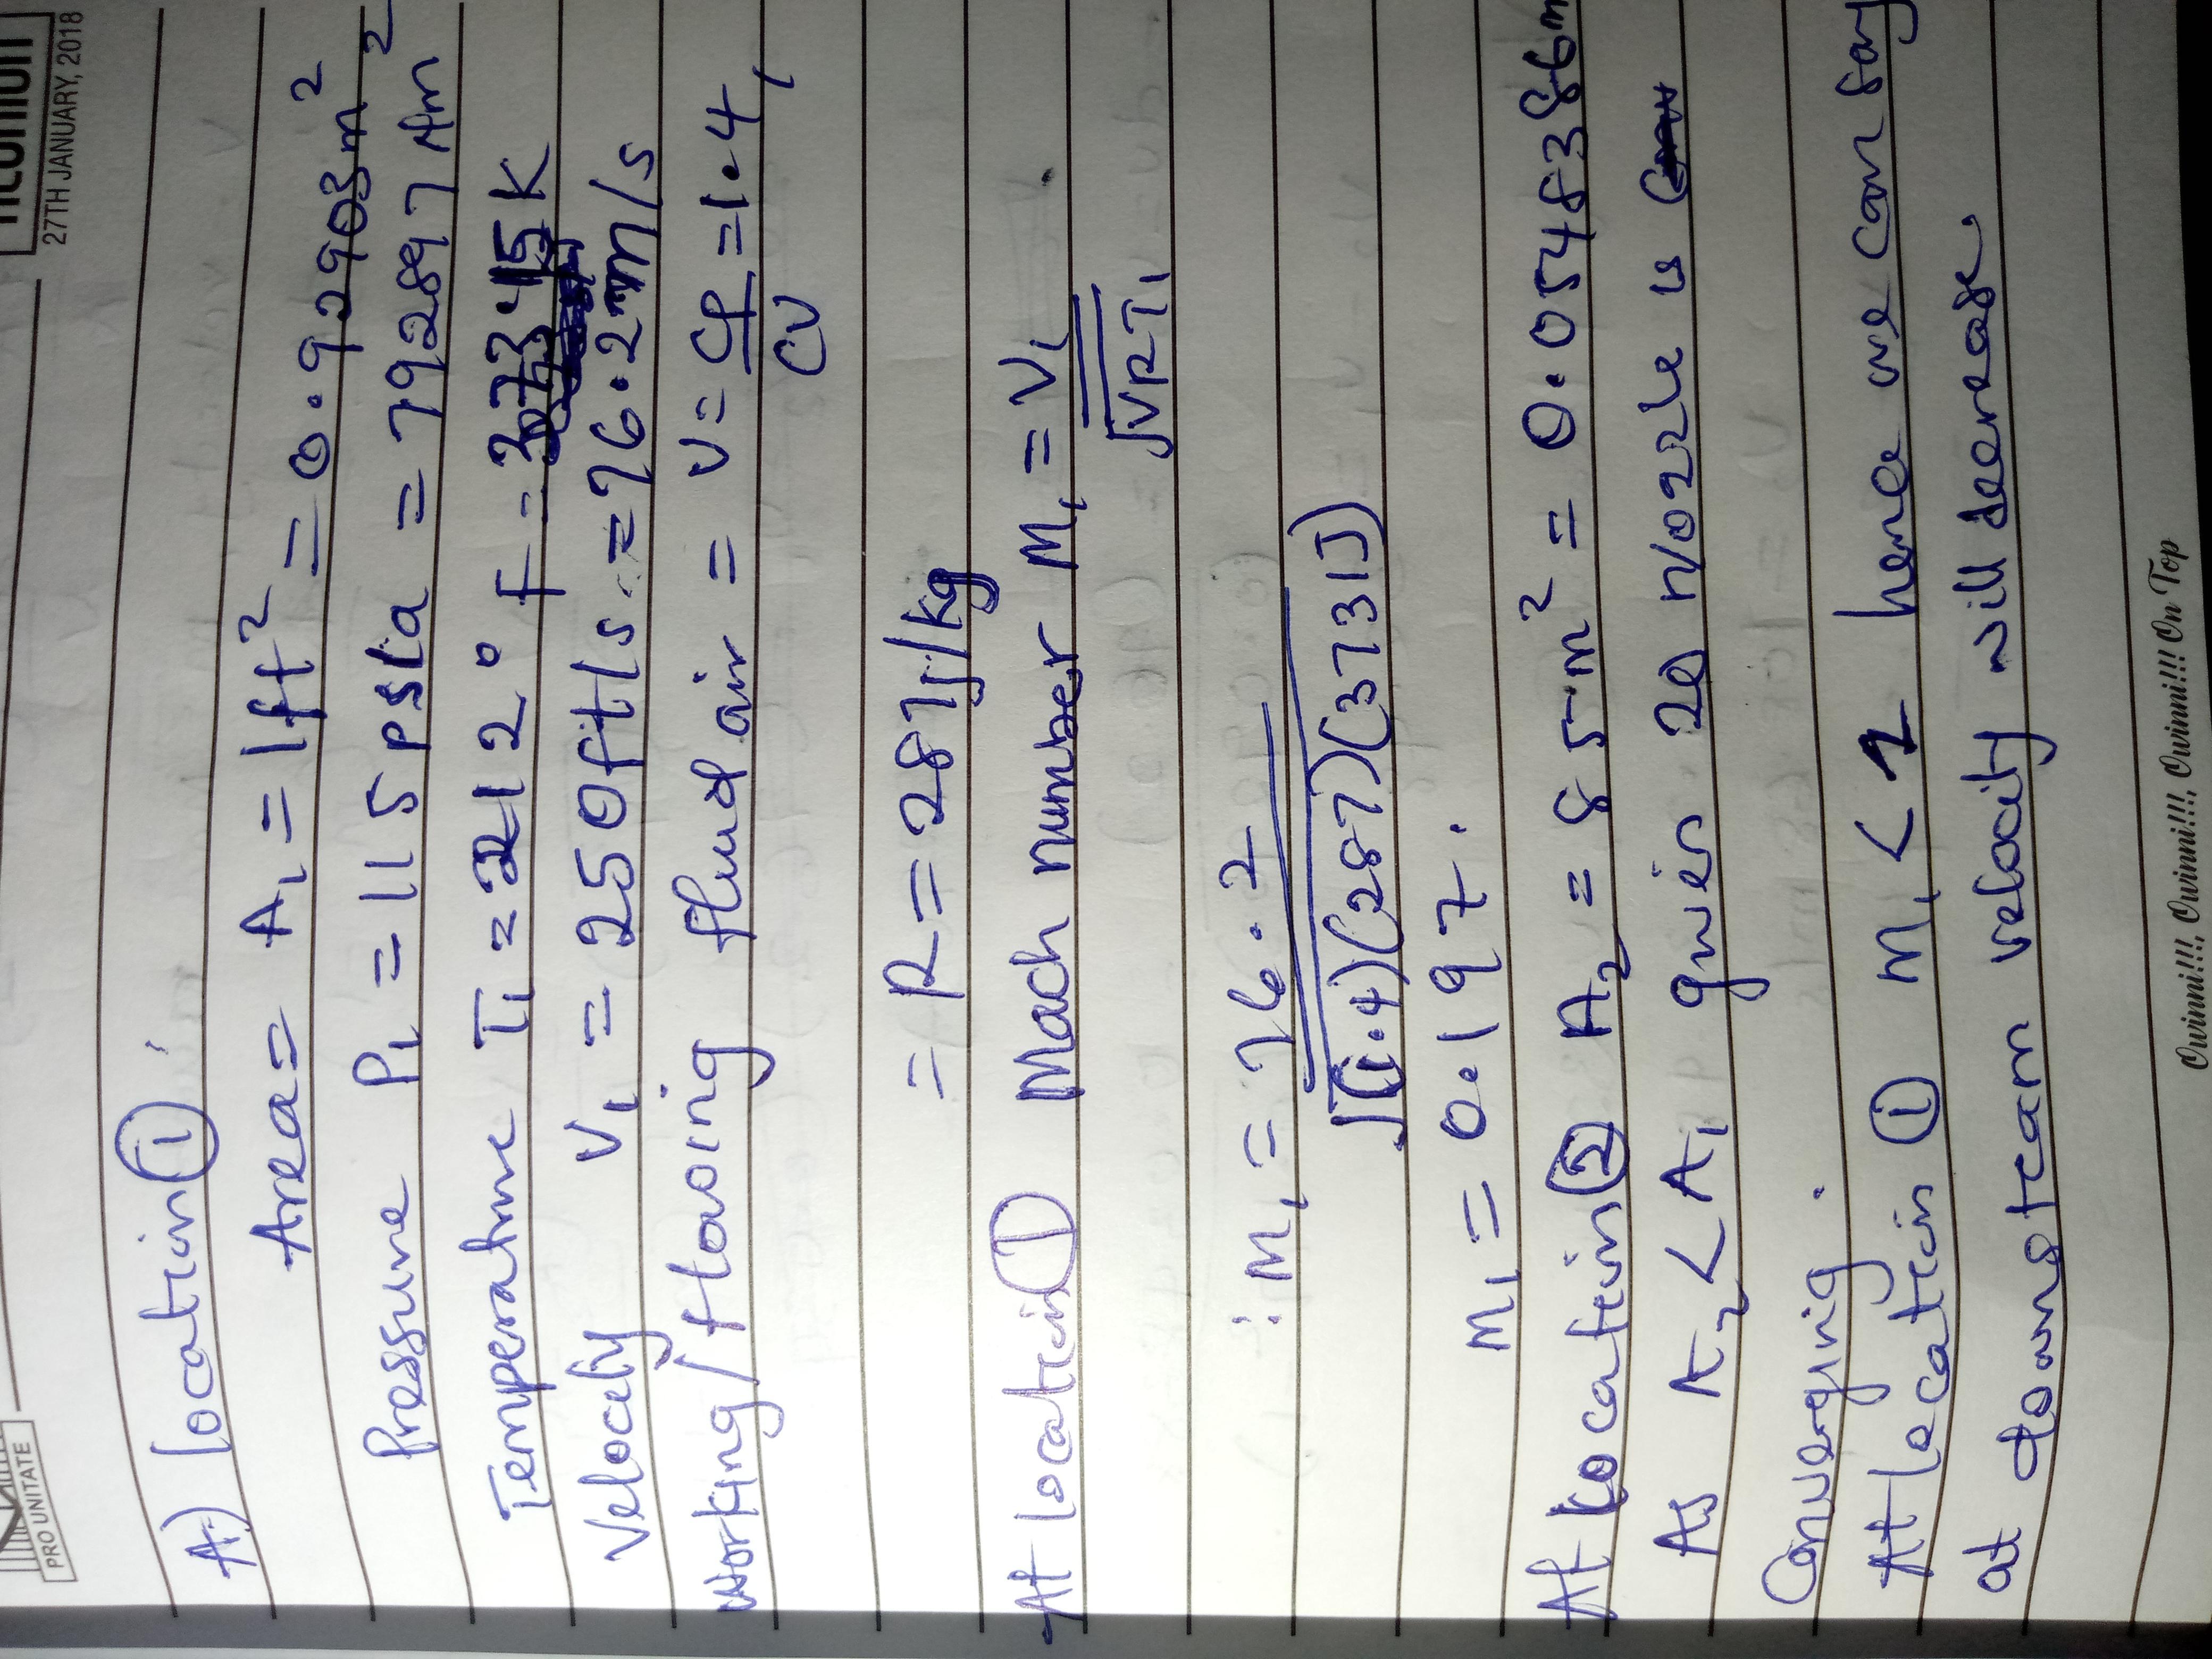 PRO UNITATE
27TH JANUARY, 2018
A) location ①
Area = A₁ = 1ft² = 0.92903m²
Pressure P₁ = 115 psia = 792897 N/m²
Temperature T₁ = 212° F = 373.15K
Velocity V₁ = 250ft/s = 76.2m/s
Working/flowing fluid air = V = CP/CV = 1.4,
= R = 287J/kg
At location ① Mach number M₁ = V₁/√VRT₁
∴ M₁ = 76.2/√(1.4)(287)(373.15)
M₁ = 0.197.
At location ② A₂ = 85 m² = 0.0548386m
As A₂ < A₁ given 2D nozzle is
Converging.
At location ① M₁ < 1 hence we can say
at downstream velocity will derease.
Owinni!!!, Owinni!!!, Owinni!!! On Top